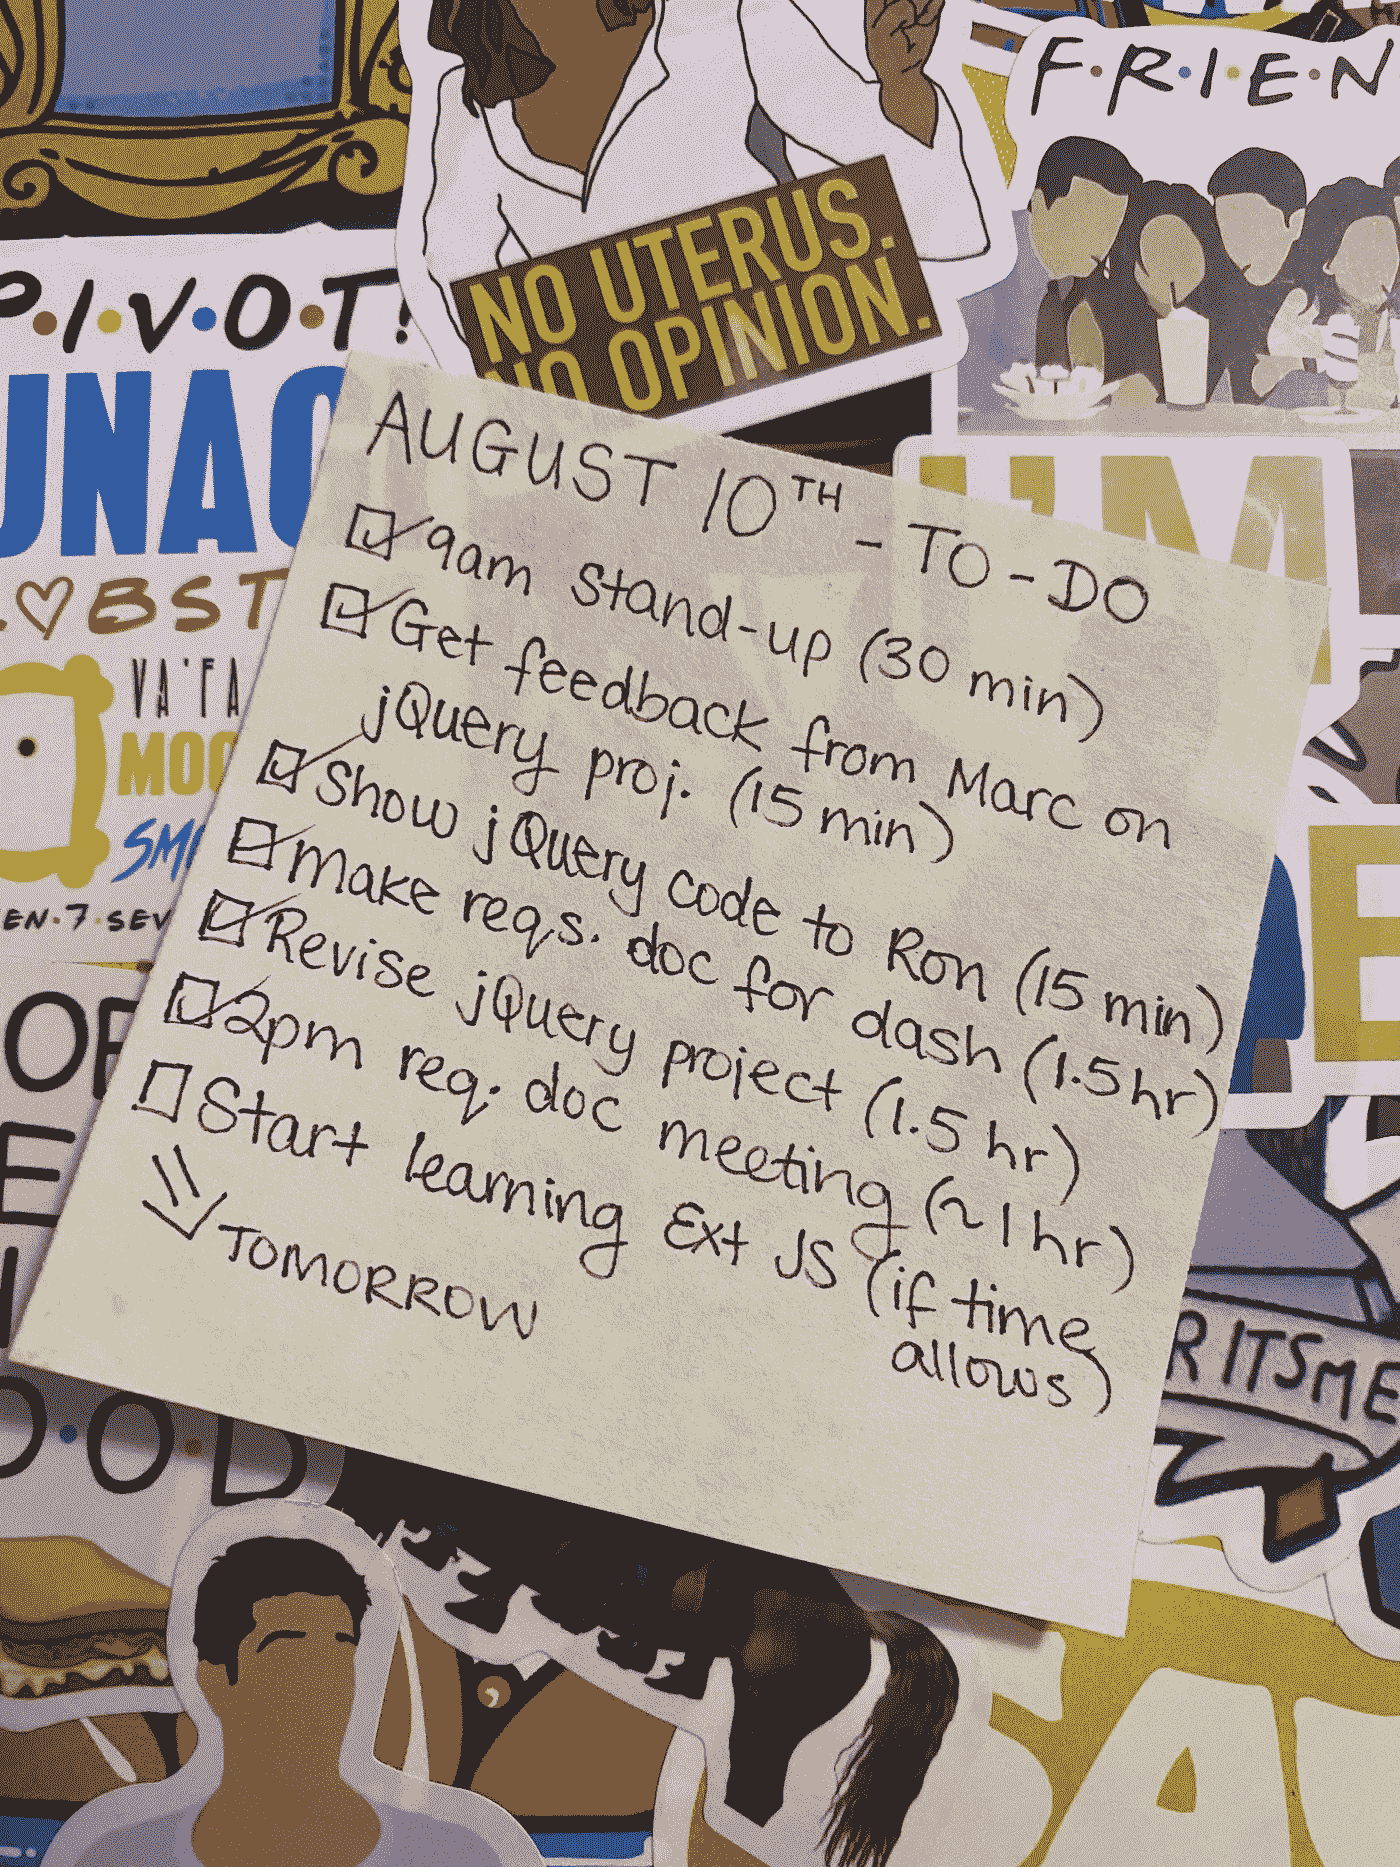 F•R•I•E•N
NO UTERUS.
NO OPINION.
P•I•V•O•T!
UNAG
BST
VA'FA
MOO
SM
EN•7•SEV
AUGUST 10TH - TO-DO
9am Stand-up (30 min)
Get feedback from Marc on
jQuery proj. (15 min)
Show jQuery code to Ron (15 min)
Make reqs. doc for dash (1.5 hr)
Revise jQuery project (1.5 hr)
2pm req. doc meeting (~1 hr)
Start learning Ext JS (if time
allows)
TOMORROW
OF
E
R ITSME
O•O•D
E
SAV